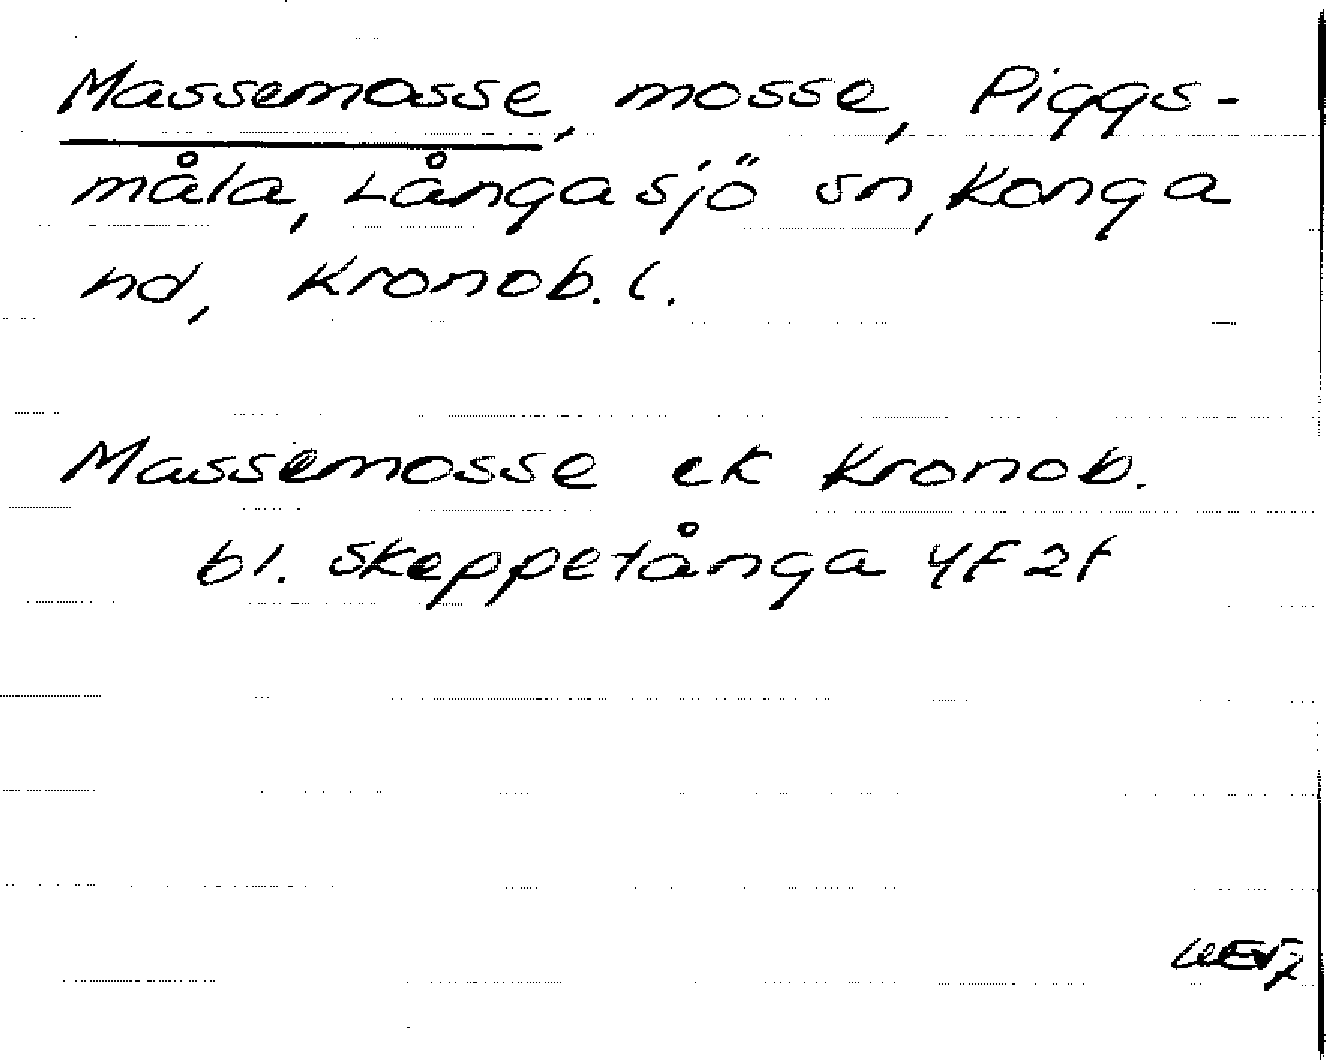 Massemosse, mosse, Piggs-
måla, Långasjö sn, Konga
hd, Kronob. l.
Massemosse ek Kronob.
bl. Skeppetånga 4F2f